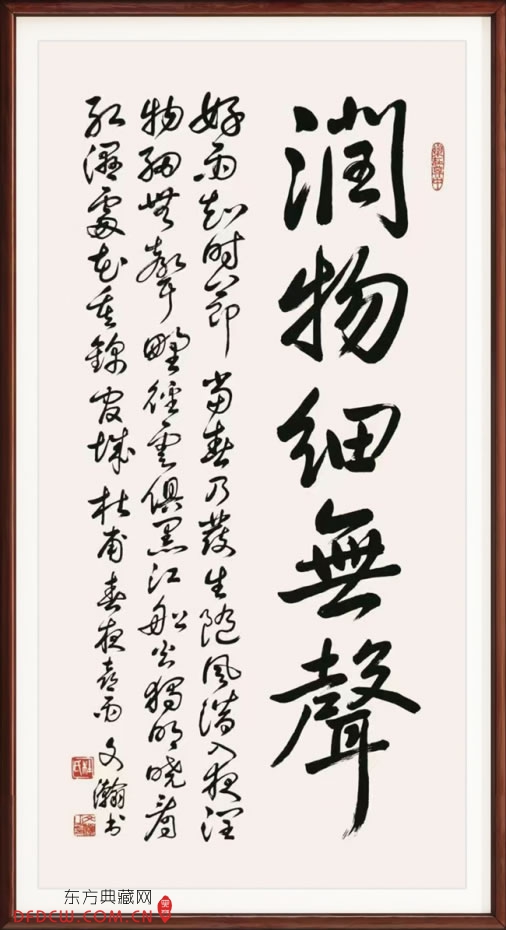 潤物細無聲
好雨知时節當春乃發生隨風潛入夜潤
物細無聲野徑雲俱黑江船火獨明曉看
紅濕處花重錦官城杜甫春夜喜雨文瀚书
东方典藏网
DFDCW.COM.CN